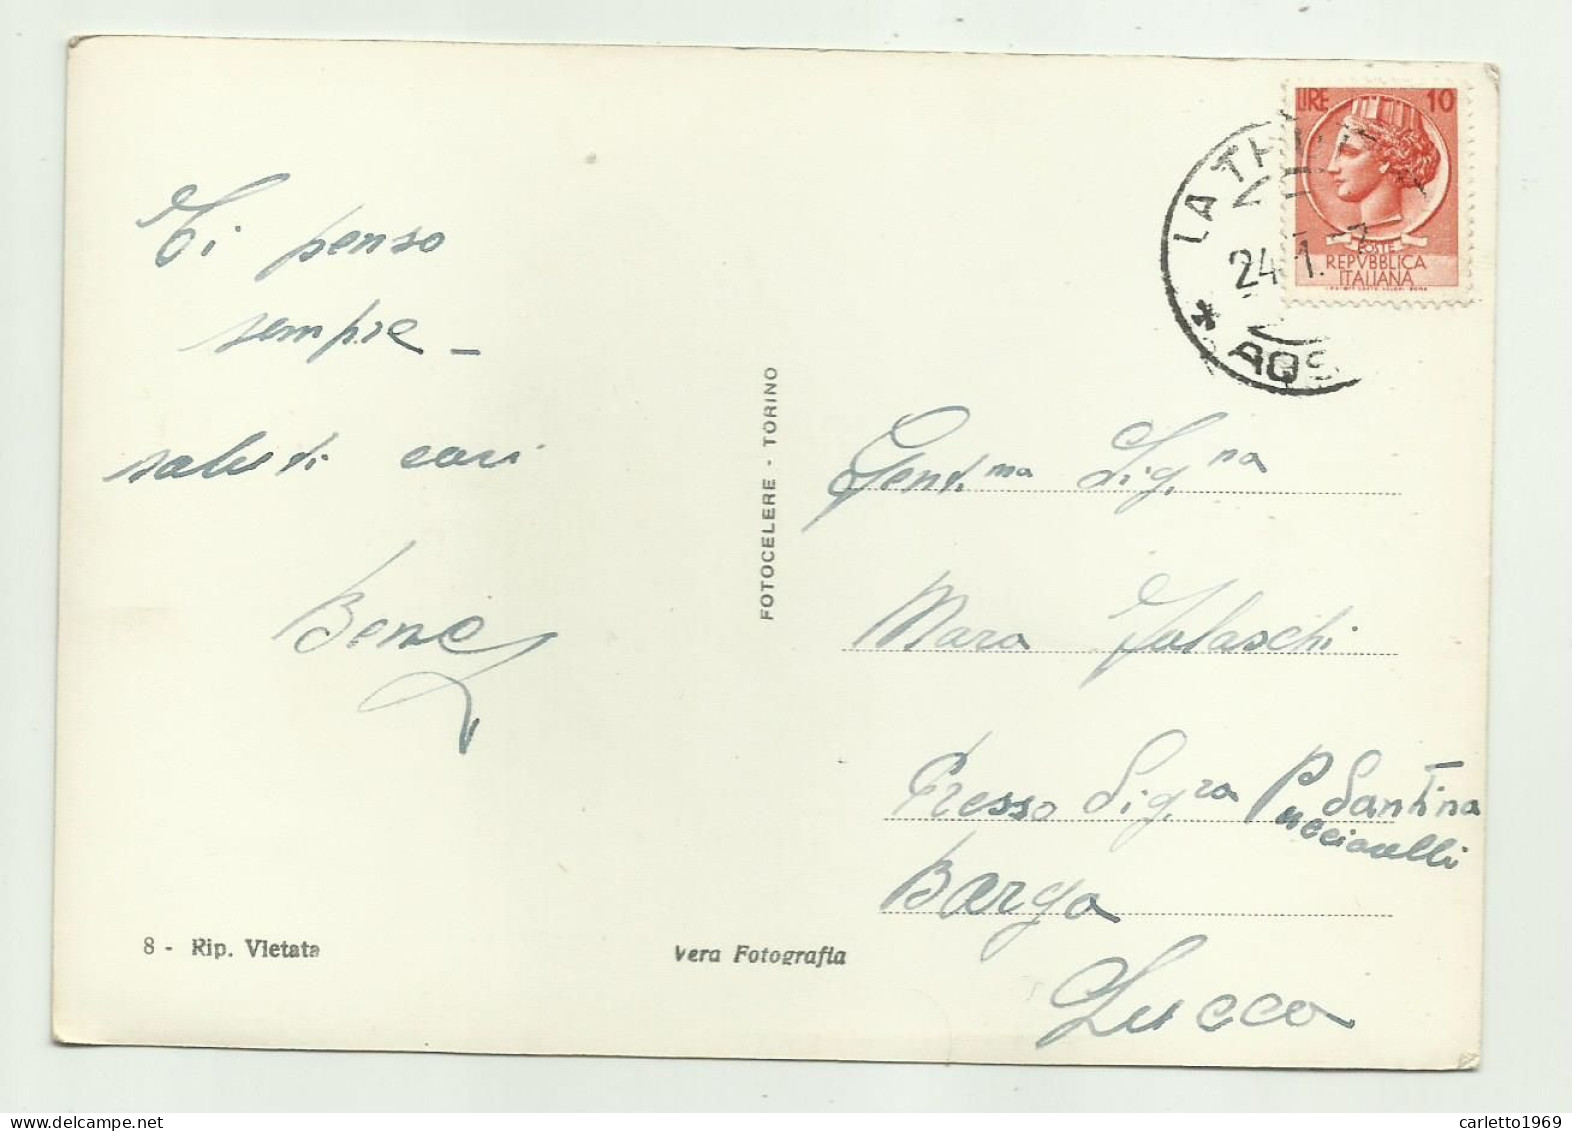 Ti penso
sempre_
saluti cari
Bene
8 - Rip. Vietata
FOTOCELERE - TORINO
Vera Fotografia
LIRE 10
POSTE
REPVBBLICA
ITALIANA
LA THUI
24 1.
* AOS
Gent.ma Sig.na
Mara
Presso Sig.ra Santina
Barga
Lucca
carletto1969